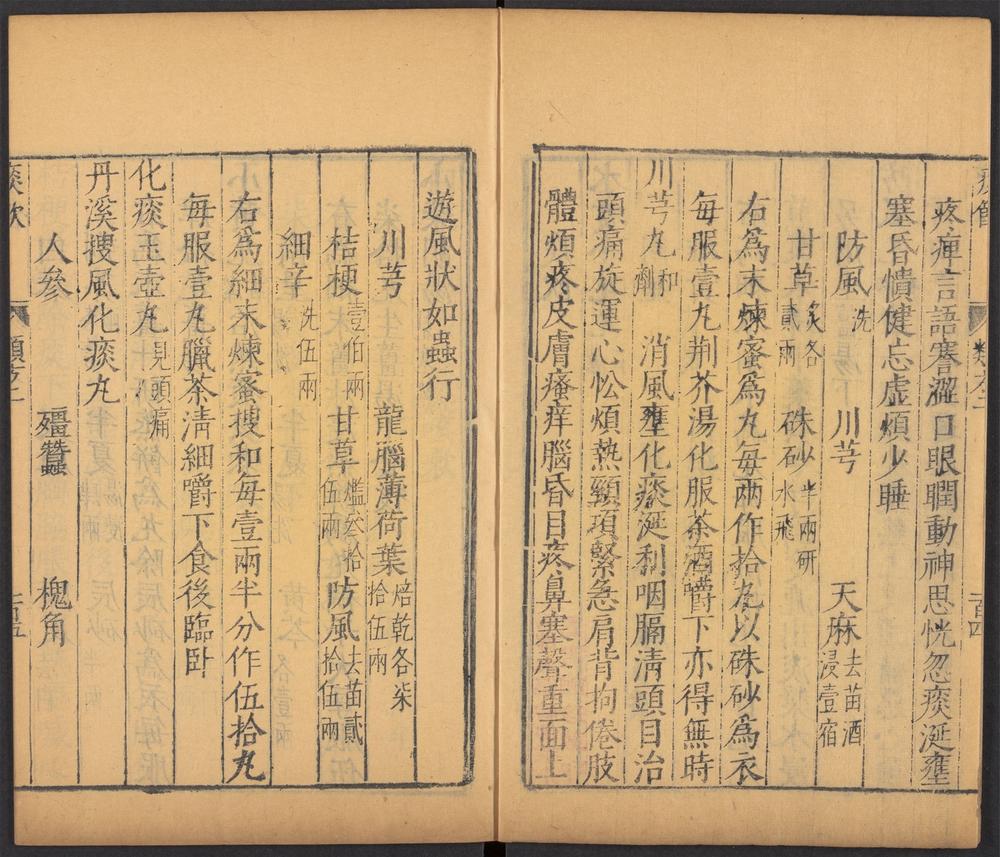 疼痺言語謇澀口眼瞤動神思恍忽痰涎壅
塞昏憒健忘虚煩少睡
防風洗 川芎 天麻去苗酒浸壹宿
甘草炙各貳兩 硃砂半兩研水飛
右爲末煉蜜爲丸每兩作拾丸以硃砂爲衣
每服壹丸荆芥湯化服茶酒嚼下亦得無時
川芎丸和劑 消風壅化痰涎利咽膈清頭目治
頭痛旋運心忪煩熱頸項緊急肩背拘倦肢
體煩疼皮膚瘙痒腦昏目疼鼻塞聲重面上
遊風狀如蟲行
川芎 龍腦薄荷葉焙乾各柒拾伍兩
桔梗壹伯兩 甘草爁叁拾伍兩 防風去苗貳拾伍兩
細辛洗伍兩
右爲細末煉蜜搜和每壹兩半分作伍拾丸
每服壹丸臘茶清細嚼下食後臨卧
化痰玉壺丸見頭痛
丹溪搜風化痰丸
人參 殭蠶 槐角
痰飲 類之二